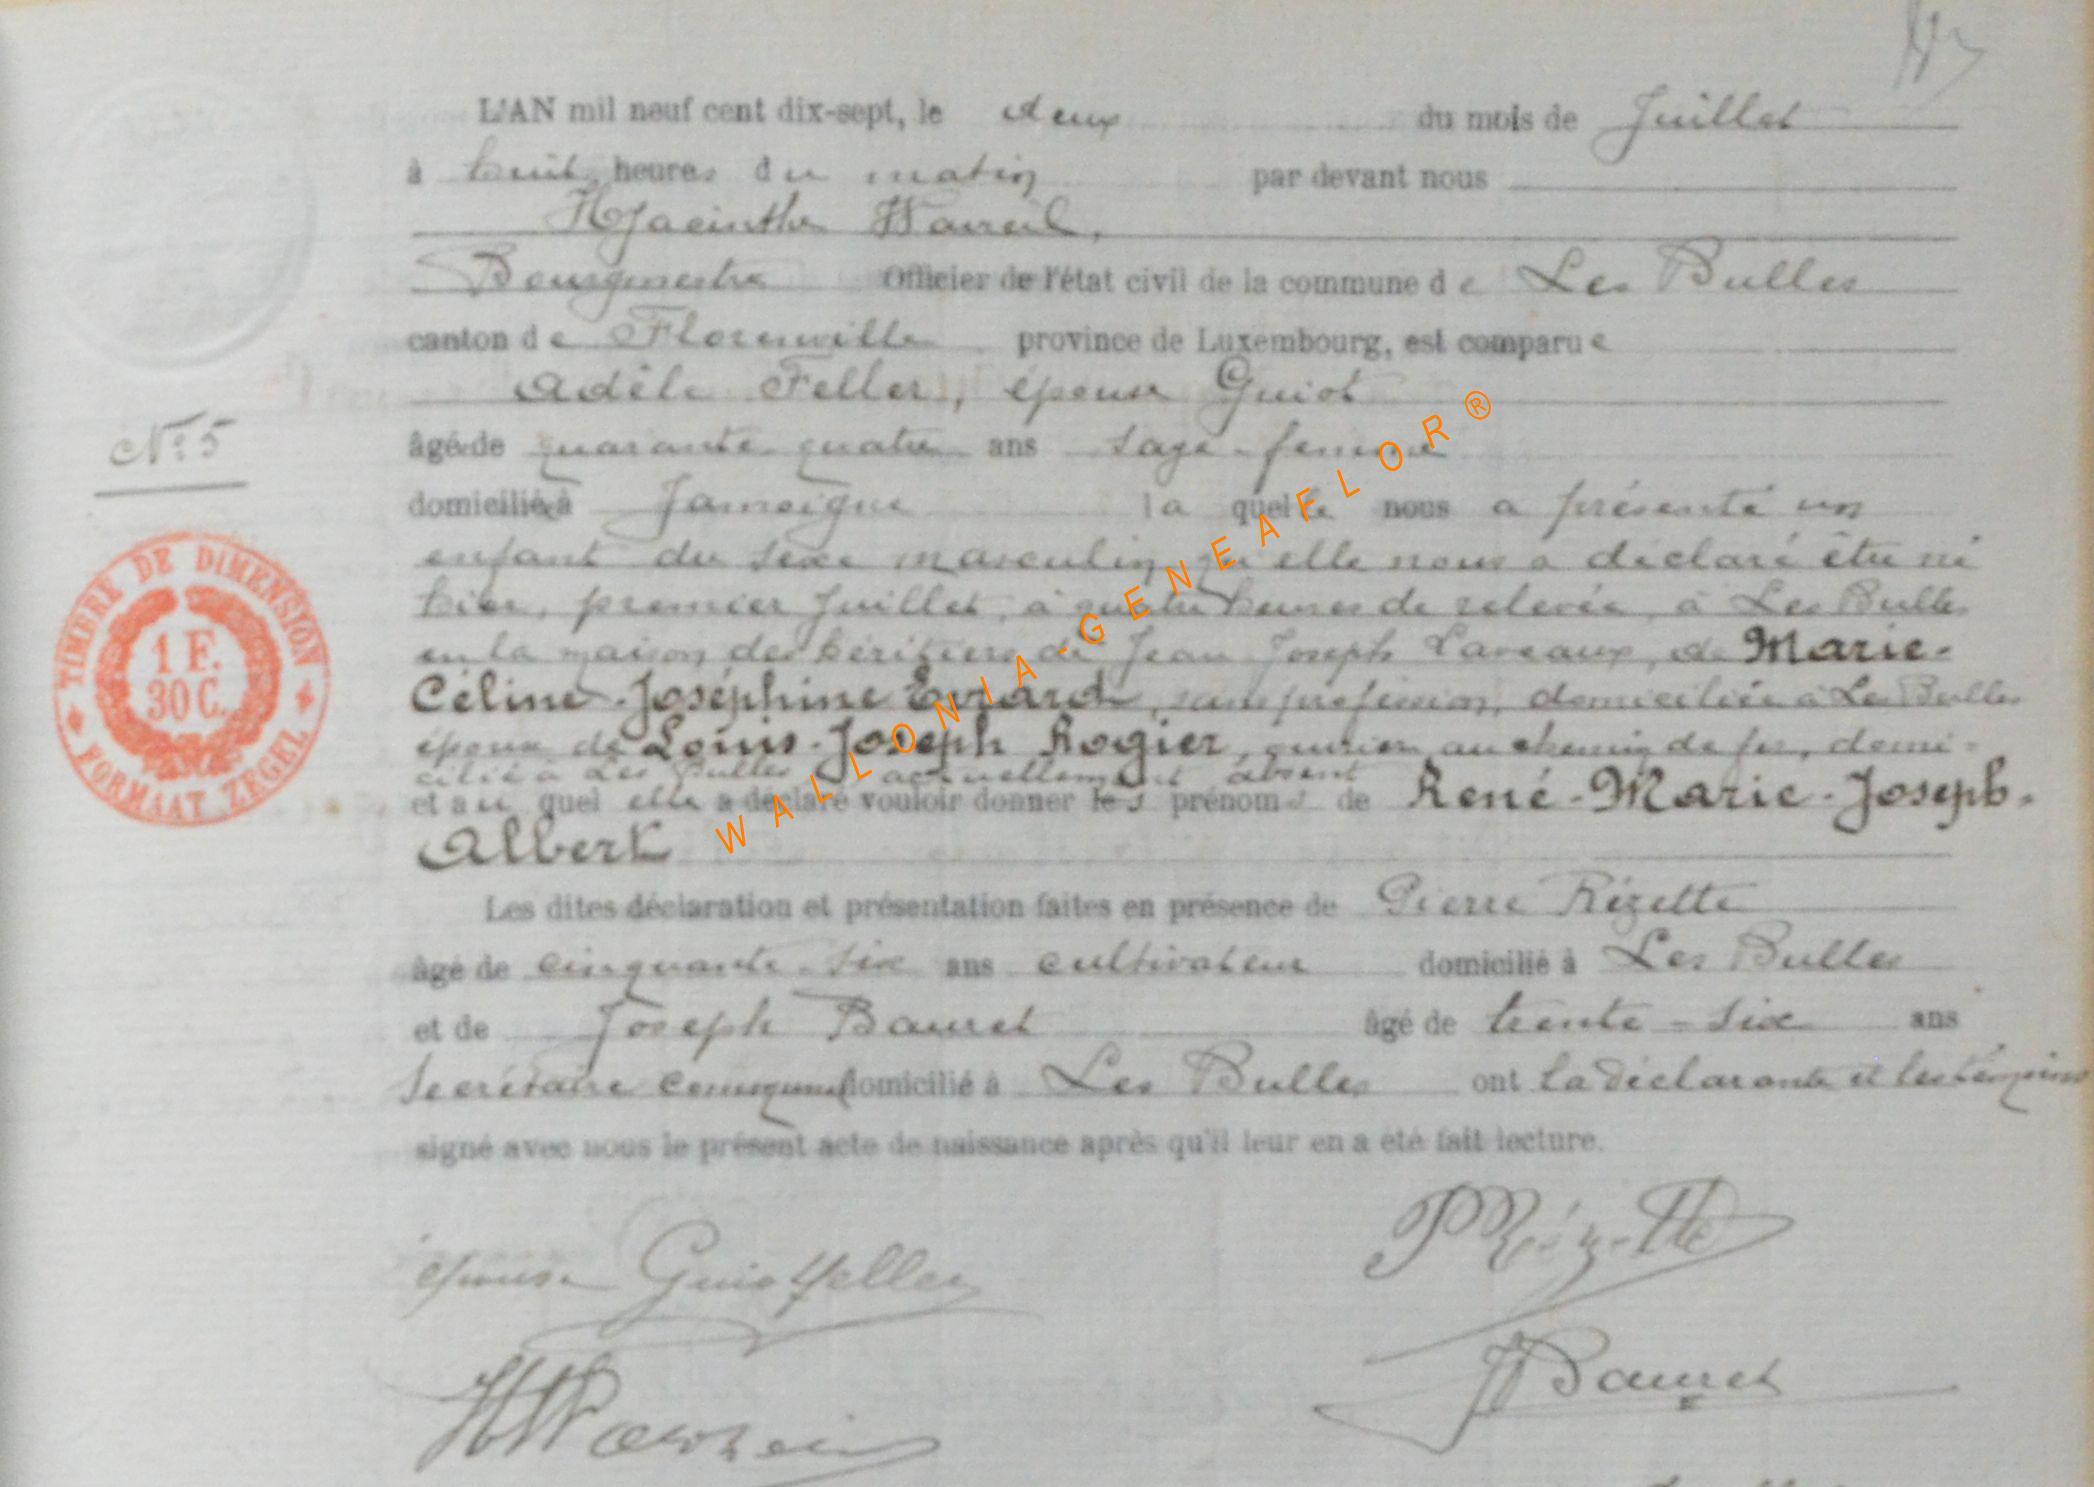 L'AN mil neuf cent dix-sept, le deux du mois de Juillet
à huit heures du matin par devant nous
Hyacinthe
Bourgmestre Officier de l'état civil de la commune de Les Bulles
canton de Florenville province de Luxembourg, est comparue
Adèle Feller, épouse Guiot
âgée de quarante-quatre ans sage-femme
N° 5
domiciliée à Jamoigne laquelle nous a présenté un
enfant du sexe masculin qu'elle nous a déclaré être né
hier, premier Juillet, à quatre heures de relevée, à Les Bulles
en la maison des héritiers de Jean Joseph Laveaux, de Marie-
Céline-Joséphine Evrard, sans profession, domiciliée à Les Bulles
épouse de Louis-Joseph Rogier, ouvrier au chemin de fer, domi-
cilié à Les Bulles, actuellement absent
et auquel elle a déclaré vouloir donner les prénoms de René-Marie-Joseph-
Albert
TIMBRE DE DIMENSION
1 F.
30 C.
FORMAAT ZEGEL
WALLONIA-GENEAFLOR®
Les dites déclaration et présentation faites en présence de Pierre Rézette
âgé de cinquante-six ans cultivateur domicilié à Les Bulles
et de Joseph Bauret âgé de trente-six ans
Secrétaire communal domicilié à Les Bulles ont la déclarante et les témoins
signé avec nous le présent acte de naissance après qu'il leur en a été fait lecture.
épouse Guiot Feller
P Rézette
J Bauret